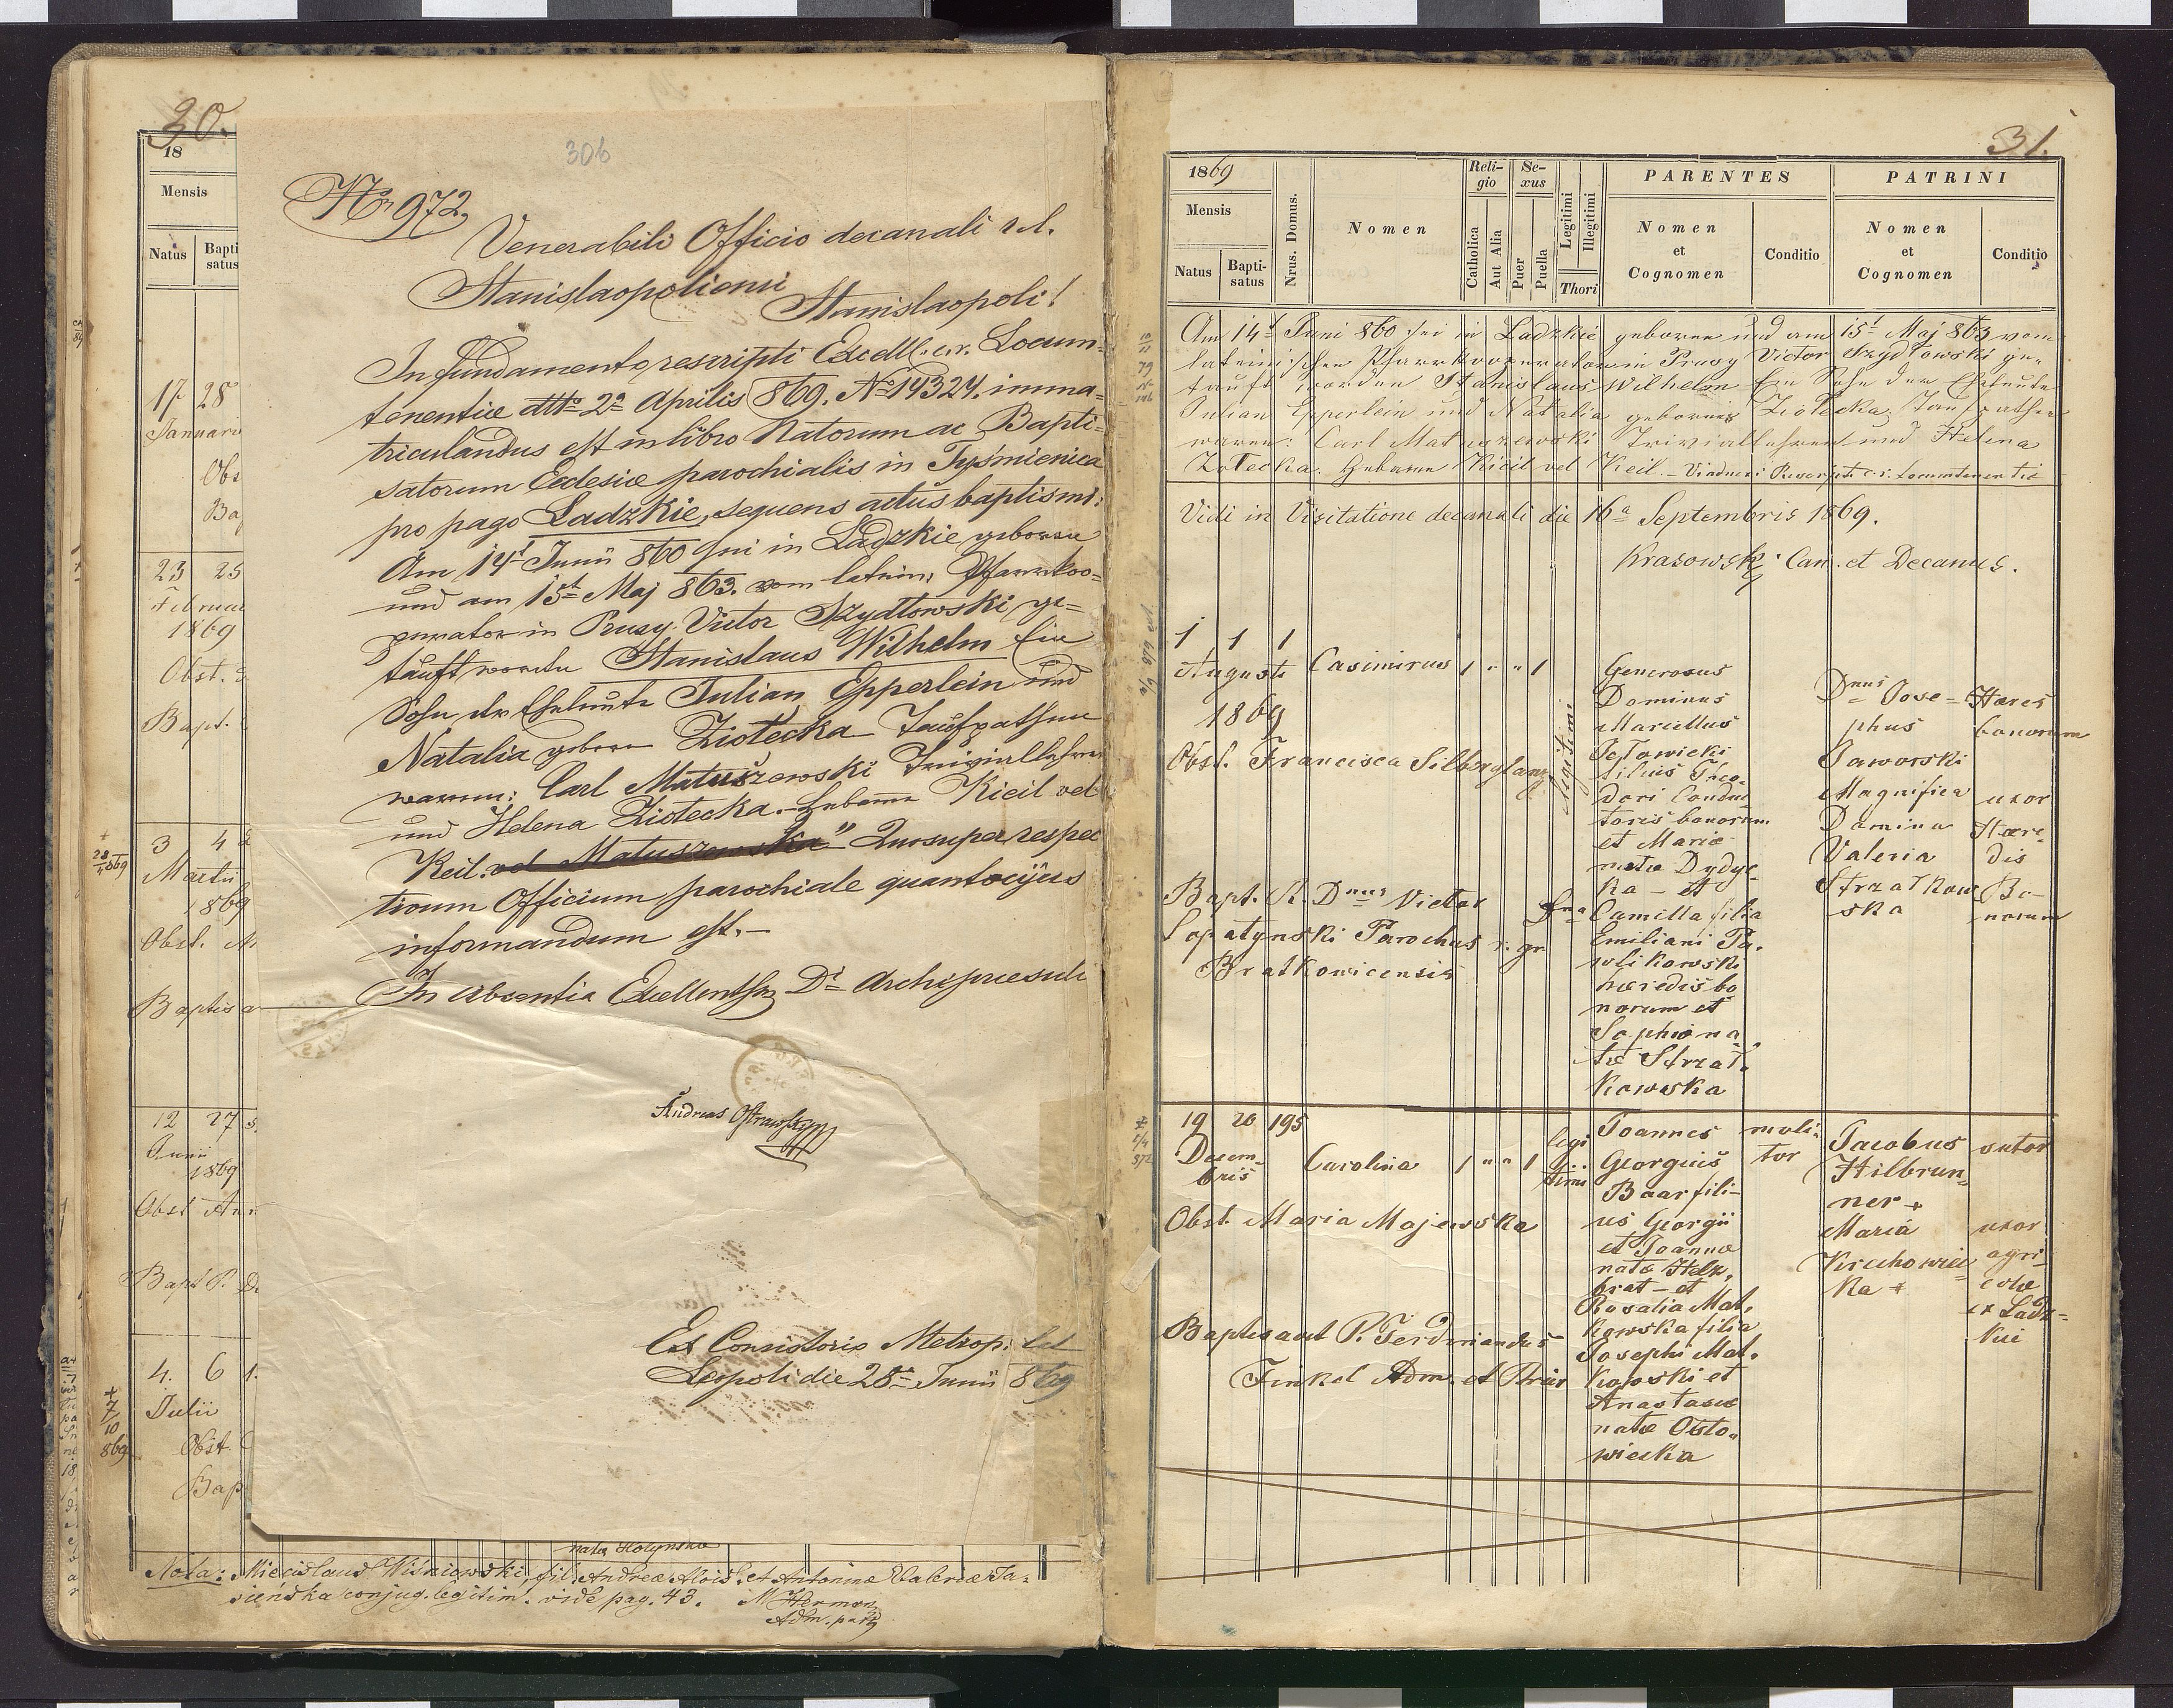 30.
18
Mensis
Natus Bapti
satus
17 28
Januar
Obs
Bap
23 25
Februar
1869
Obst.
Bapt.
3 4
Martii
1869
Obst. M
Baptisa
12 27
Junii
1869
Obst An
Bapt P. D
4. 6 1.
Julii
Obst.
Bap
306
No 972,
Venerabili Officio decanali r.l.
Stanislaopoliensi
Stanislaopoli!
In fundamento rescripti Excell. c.r. Locum=
tenentiæ ddto 2a Aprilis 869. No 14324. imma=
triculandus est in libro Natorum ac Bapti=
satorum Ecclesiæ parochialis in Tyśmienica
pro pago Ladzkie, sequens actus baptismi:
Am 14t Junii 860 sei in Ladzkie geboren
und am 15t Maj 863. vom latein. Pfarrkoo=
perator in Prusy Victor Szydłowski ge=
tauft worden Stanislaus Wilhelm Ein
Sohn der Eheleute Julian Epperlein und
Natalia geboren Ziołecka Taufpathen
waren: Carl Matuszewski Triviallehrer
und Helena Ziołecka. Hebame Kicil vel
Keil. vel Matuszewska" Quosuper respec
tivum Officium parochiale quantocÿus
informandum est.—
In absentia Excellentssmi Di Archipræsuli
Andreas Ostrawski
Ex Consistorio Metrop. lat
Leopoli die 28a Junii 869
nata Hołyńska
Nota: Miecislaus Wiśniewski, fil. Andreæ Alois. et Antoninæ Valeriæ Ja=
sieńska conjug. legitim. vide pag. 43. M Herman
Adm. par
31.
1869
Mensis
Natus
Bapti-
satus
Nrus. Domus.
Nomen
Reli-
gio
Catholica
Aut Alia
Se-
xus
Puer
Puella
Legitimi
Illegitimi
Thori
PARENTES
Nomen
et
Cognomen
Conditio
PATRINI
Nomen
et
Cognomen
Conditio
Am 14t Juni 860 sei in Ladzkie geboren und am 15t Maj 863 vom
lateinischen Pfarrkooperator in Prusy Victor Szydłowski ge=
tauft worden Stanislaus Wilhelm Ein Sohn der Eheleute
Julian Epperlein und Natalia geborene Ziołecka. Taufpathen
waren: Carl Matuszewski Triviallehrer und Helena
Ziołecka. Hebame Kicil vel Keil. – Viadueri Rescripti c.r. Locumtenentiæ
Vidi in Visitatione decanali die 16a Septembris 1869.
Krasowski Can. et Decanus.
1 1 1
Augusti
1869
Casimirus 1 " " 1
Legitimi
Generosus
Dominus
Marcellus
Jełowicki
filius Theo=
dori Conduc
toris bonorum
et Mariæ
natæ Dydyc=
ka – et
Dna Camilla filia
Emiliani Pa=
wlikowski
hæredis bo
norum et
Sophiæ na=
tæ Strzał=
kowska
Dnus Jose=
phus
Jaworski
Magnifica
Domina
Valeria
Strzałkow
ska
Hæres
bonorum
uxor
Hære=
dis
Bo=
norum
Obst. Francisca Silberglanz
Bapt. R. Dnus Victor
Łopatyński Parochus r. gr.
Bratkowicensis
19 20 195
Decem=
bris
Carolina 1 " " 1
legi
timi
Joannes
Georgius
Baar fili=
us Georgii
et Joannæ
natæ Helm=
brat – et
Rosalia Mał=
kowska filia
Josephi Mał=
kowski et
Anastasiæ
natæ Osto=
wiecka
moli=
tor
Jacobus
Hilbrun=
ner +
Maria
Kruchowiec=
ka +
sutor
uxor
agri=
colæ
ex Ladz=
kie
Obst. Maria Majewska
Baptisavit P. Ferdinandus
Finkel Adm. et Prior